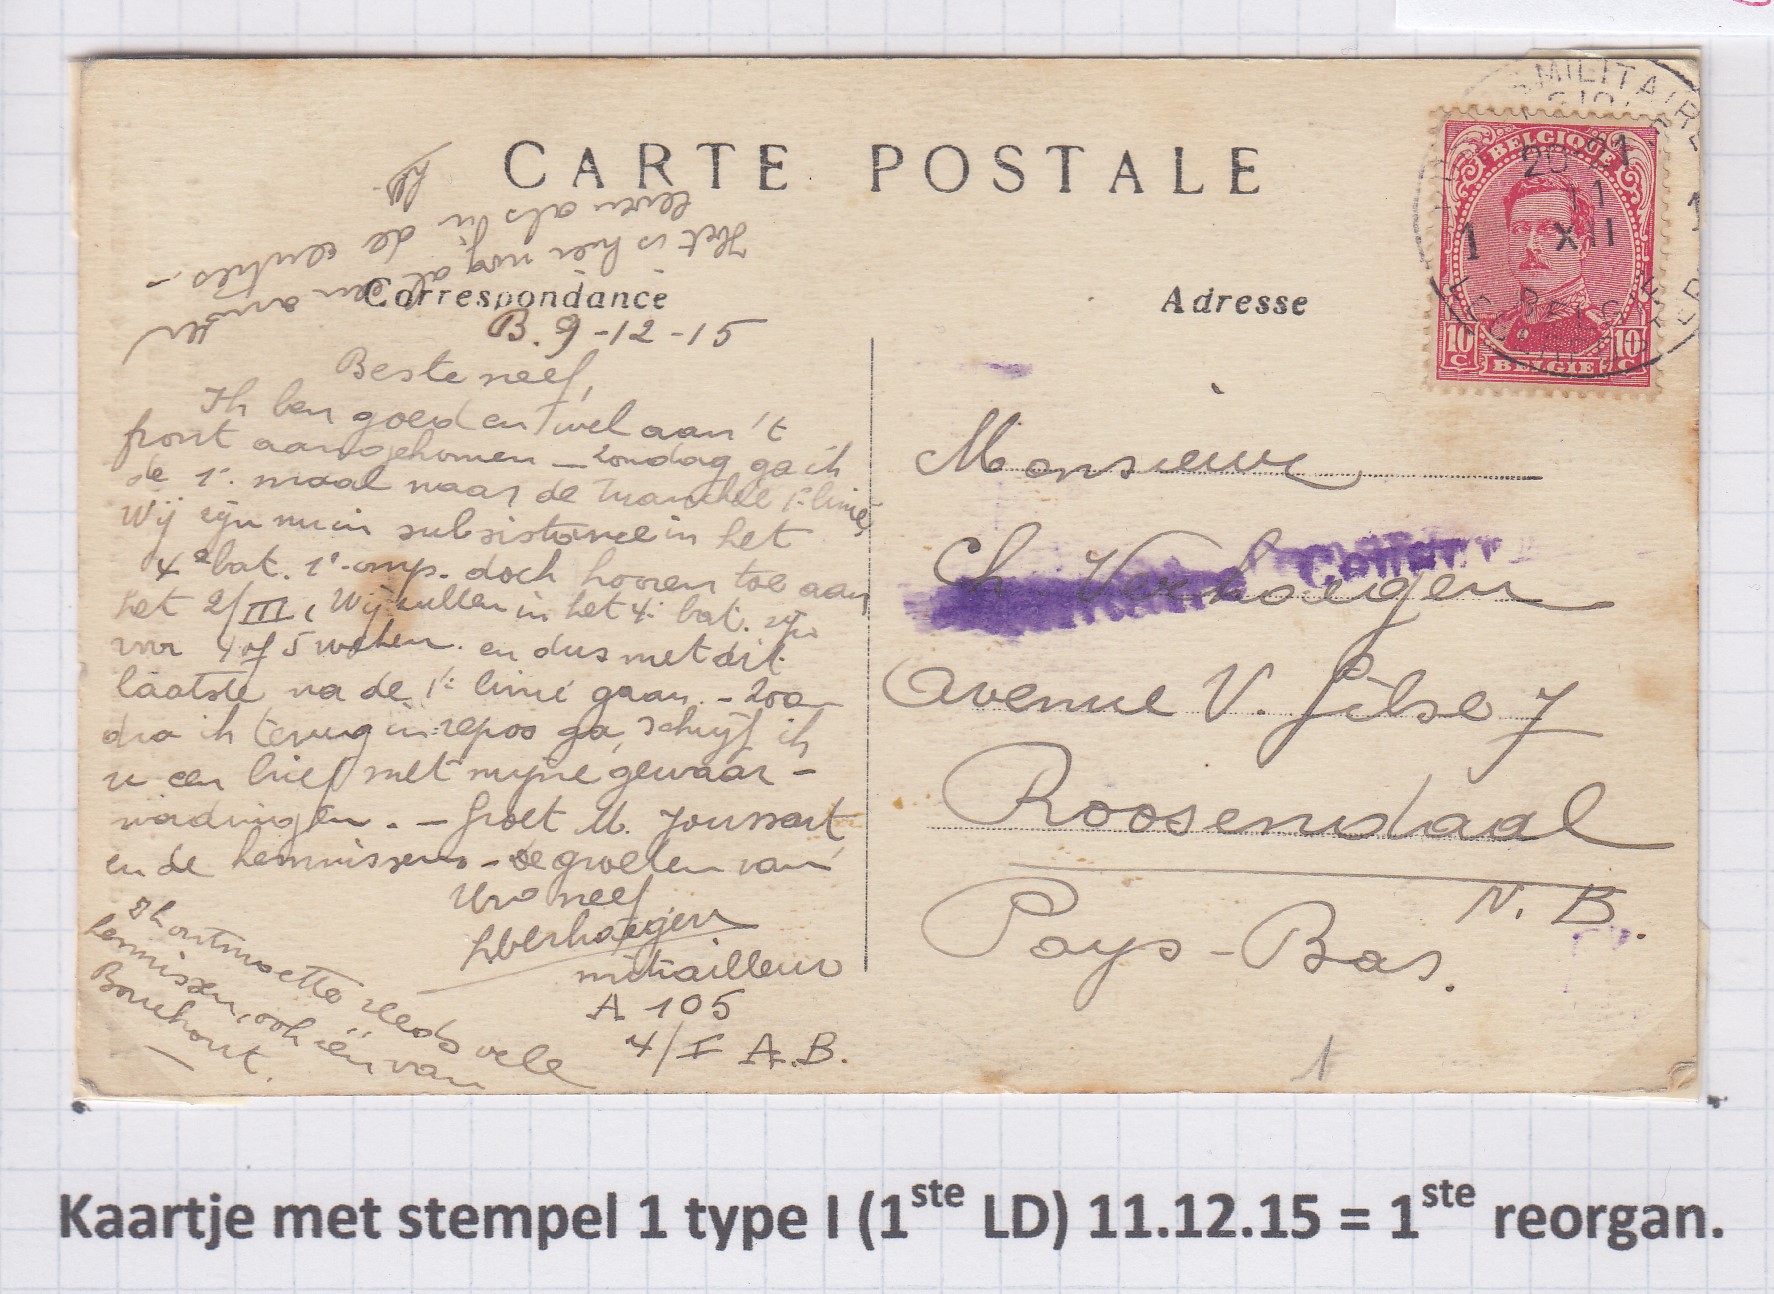 CARTE POSTALE
Correspondance
Adresse
Het is hier nog al een ander
leven als in de centies.-
B. 9-12-15
Beste neef,
Ik ben goed en wel aan 't
front aangekomen - Zondag ga ik
de 1e. maal naar de tranchée 1e linie,
Wij zijn nu in subsistance in het
4e bat. 1e comp. doch hooren toe aan
het 2/III, Wij zullen in het 4e bat. zijn
voor 4 of 5 weken en dus met dit
laatste na de 1e linie gaan. - Zoo-
dra ik terug in repos ga, schrijf ik
u een brief met mijne gewaar-
wordingen. - Groet M. Joussart
en de kennissen - de groeten van
Uw neef
Verhaegen
mitrailleur
A 105
4/I A.B.
Ik ontmoette reeds vele
kennissen, ook één van
Bouchout.
MILITAIRE
BELGIQUE
20 21
11
XII
1 1
BELGIE
10 C 10 C
BELGIE
Monsieur
Ch. Verhaegen
Avenue V. Gilse 7
Roosendaal
N. B.
Pays-Bas.
1
Kaartje met stempel 1 type I (1ste LD) 11.12.15 = 1ste reorgan.